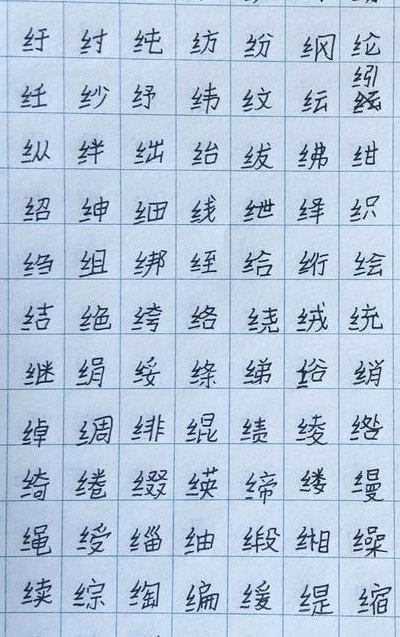 纡 纣 纯 纺 纷 纲 纶
纴 纱 纾 纬 纹 纭 纼
纵 绊 绌 绐 绂 绋 绀
绍 绅 细 线 绁 绎 织
绉 组 绑 绖 给 绗 绘
结 绝 绔 络 绕 绒 统
继 绢 绥 绦 绨 绤 绡
绰 绸 绯 绲 绩 绫 绺
绮 绻 缀 缔 缕 缦
绳 绶 缁 䌷 缎 缃 缲
续 综 绹 编 缓 缇 缩